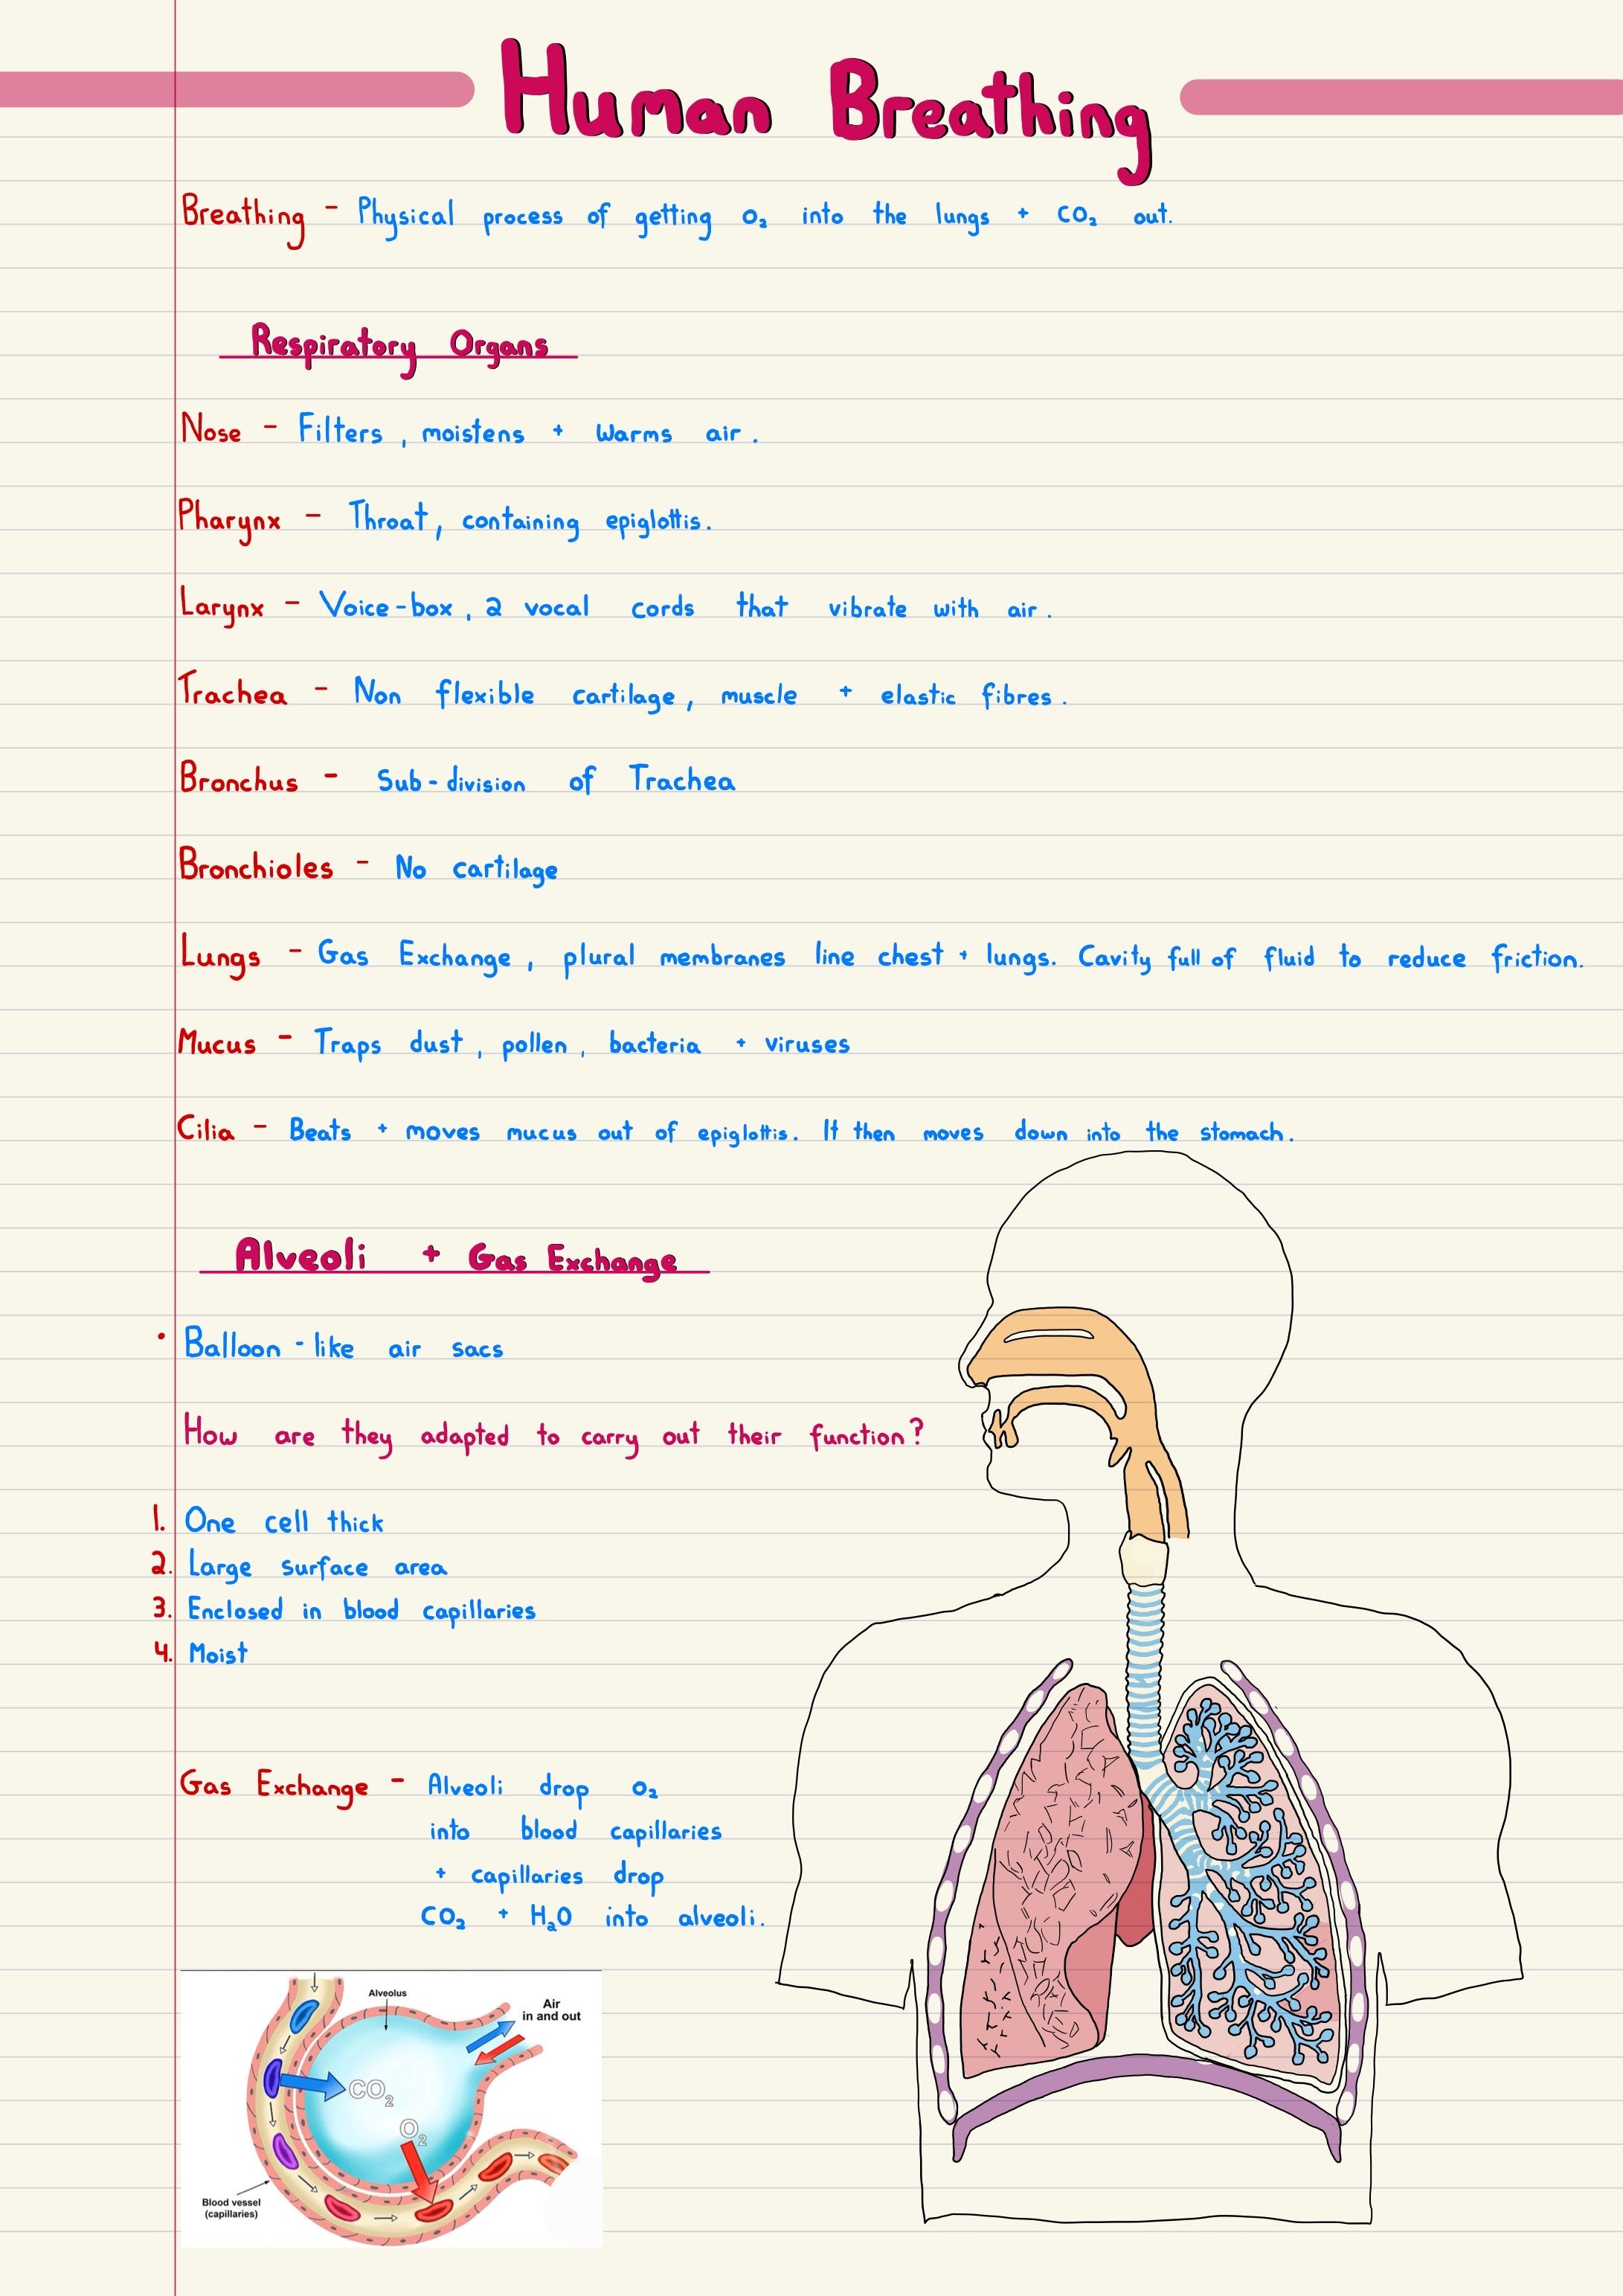 Human Breathing
Breathing - Physical process of getting O₂ into the lungs + CO₂ out.
Respiratory Organs
Nose - Filters, moistens + warms air.
Pharynx - Throat, containing epiglottis.
Larynx - Voice-box, 2 vocal cords that vibrate with air.
Trachea - Non flexible cartilage, muscle + elastic fibres.
Bronchus - Sub-division of Trachea
Bronchioles - No cartilage
Lungs - Gas Exchange, plural membranes line chest + lungs. Cavity full of fluid to reduce friction.
Mucus - Traps dust, pollen, bacteria + viruses
Cilia - Beats + moves mucus out of epiglottis. It then moves down into the stomach.
Alveoli + Gas Exchange
• Balloon-like air sacs
How are they adapted to carry out their function?
1. One cell thick
2. Large surface area
3. Enclosed in blood capillaries
4. Moist
Gas Exchange - Alveoli drop O₂
into blood capillaries
+ capillaries drop
CO₂ + H₂O into alveoli.
Alveolus
Air
in and out
CO₂
O₂
Blood vessel
(capillaries)